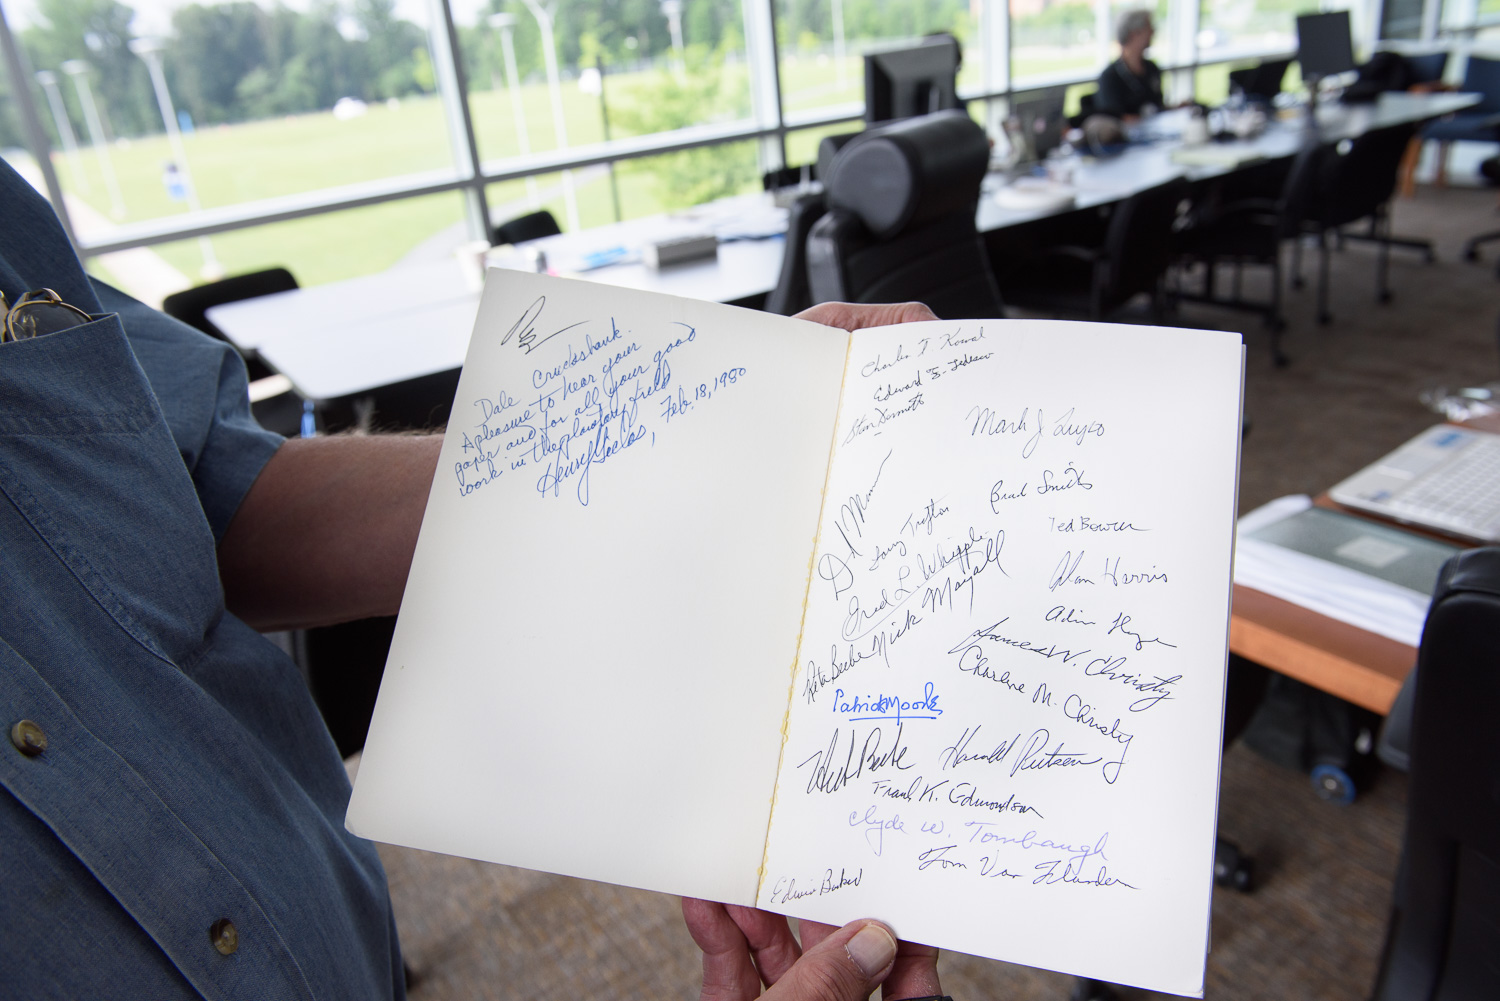 Dale Cruikshank.
A pleasure to hear your
paper and for all your good
work in the planetary field
Henry Giclas, Feb. 18, 1980
Charles T Kowal
Edward F. Tedesco
Stan Dermott
Mark J Lupo
D Mo
Brad Smith
Larry Trafton
Ted Bowen
Fred L. Whipple
Alan Harris
Nick Mayall
Reta Beebe
James W. Christy
Charlene M. Christy
Patrick Moore
Herb Beebe
Harold Reitsema
Frank K. Edmondson
Clyde W. Tombaugh
Tom Van Flandern
Edwin Barker